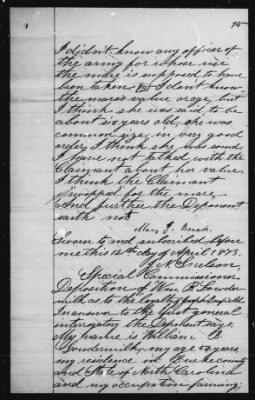 75
I didn't know any officer of
the army for whose use
the mare is supposed to have
been taken. I don't know
the mare's value or age, but
I think she was said to be
about six years old, she was
common size, in very good
order, I think she was sound
I have not talked with the
Claimant about her value.
I think the Claimant
"swapped" for the mare
And further the Deponent
saith not
Mary J.
Sworn to and subscribed before
me this 12th day of April 1873.
Special Commissioner
Deposition of Wm. R. Lowder-
milk as to the loyalty of Joseph
In answer to the first general
interrogatory the Deponent says.
My name is William R.
Lowdermilk, my age years
my residence in Burke county
and State of North Carolina
and my occupation farming;